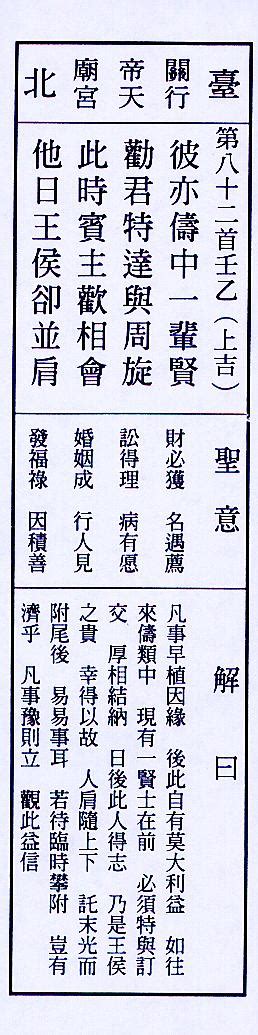 臺
關行
帝天
廟宮
北
第八十二首壬乙（上吉）
彼亦儔中一輩賢
勸君特達與周旋
此時賓主歡相會
他日王侯卻並肩
聖意
財必獲　名遇薦
訟得理　病有愿
婚姻成　行人見
發福祿　因積善
解曰
凡事早植因緣　後此自有莫大利益　如往
來儔類中　現有一賢士在前　必須特與訂
交　厚相結納　日後此人得志　乃是王侯
之貴　幸得以故　人肩隨上下　託末光而
附尾後　易易事耳　若待臨時攀附　豈有
濟乎　凡事豫則立　觀此益信